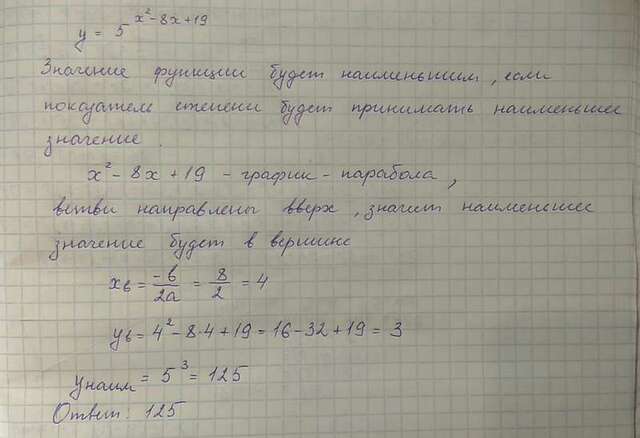 y = 5^(x²-8x+19)
Значение функции будет наименьшим, если
показатель степени будет принимать наименьшее
значение.
x² - 8x + 19 - график - парабола,
ветви направлены вверх, значит наименьшее
значение будет в вершине
xв = -b/2a = 8/2 = 4
yв = 4² - 8·4 + 19 = 16 - 32 + 19 = 3
yнаим = 5³ = 125
Ответ: 125